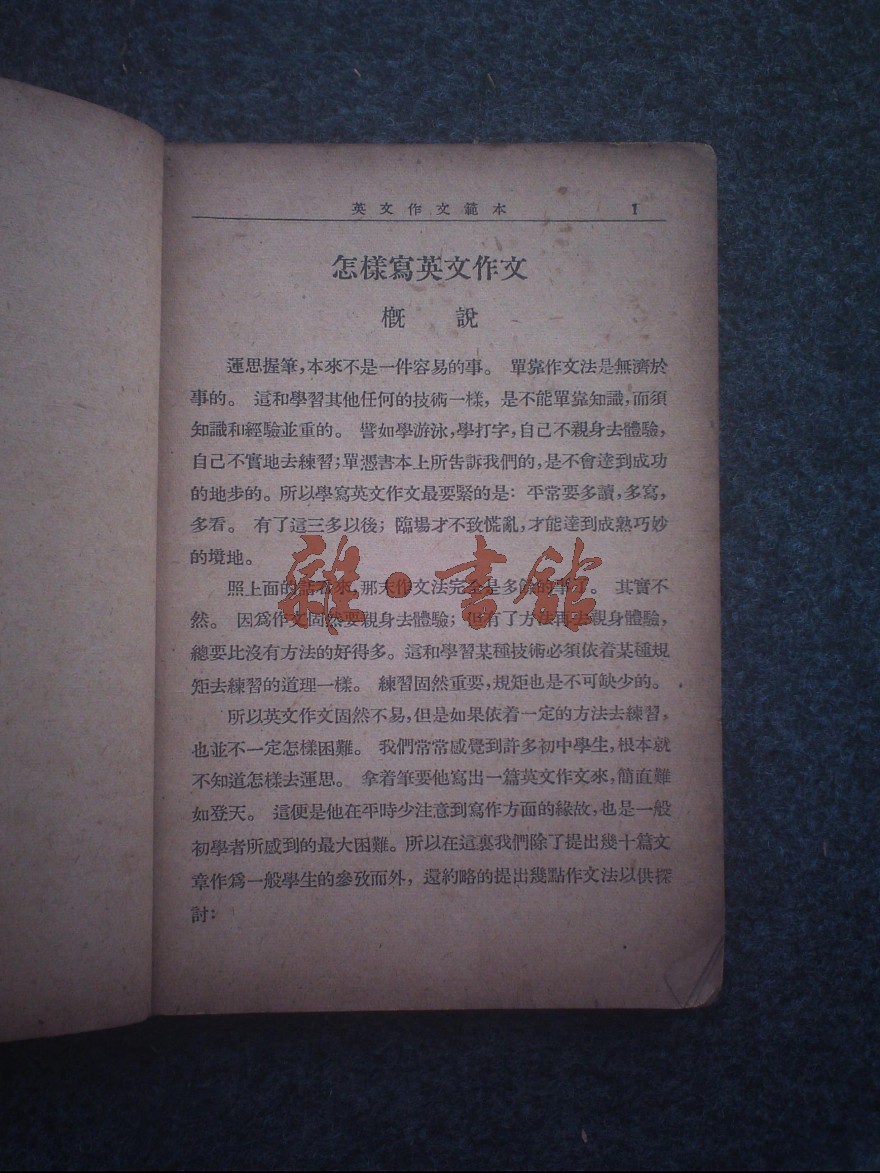 英文作文範本 1
怎樣寫英文作文
概 說
運思握筆,本來不是一件容易的事。 單靠作文法是無濟於
事的。 這和學習其他任何的技術一樣, 是不能單靠知識,而須
知識和經驗並重的。 譬如學游泳,學打字,自己不親身去體驗,
自己不實地去練習;單憑書本上所告訴我們的,是不會達到成功
的地步的。所以學寫英文作文最要緊的是: 平常要多讀,多寫,
多看。 有了這三多以後; 臨場才不致慌亂,才能達到成熟巧妙
的境地。
照上面的話看來,那末作文法完全是多餘的事了。 其實不
然。 因爲作文固然要親身去體驗; 但有了方法再去親身體驗,
總要比沒有方法的好得多。這和學習某種技術必須依着某種規
矩去練習的道理一樣。 練習固然重要,規矩也是不可缺少的。
所以英文作文固然不易,但是如果依着一定的方法去練習,
也並不一定怎樣困難。 我們常常感覺到許多初中學生,根本就
不知道怎樣去運思。 拿着筆要他寫出一篇英文作文來,簡直難
如登天。 這便是他在平時少注意到寫作方面的緣故,也是一般
初學者所感到的最大困難。所以在這裏我們除了提出幾十篇文
章作爲一般學生的參攷而外, 還約略的提出幾點作文法以供探
討:
雜·書館